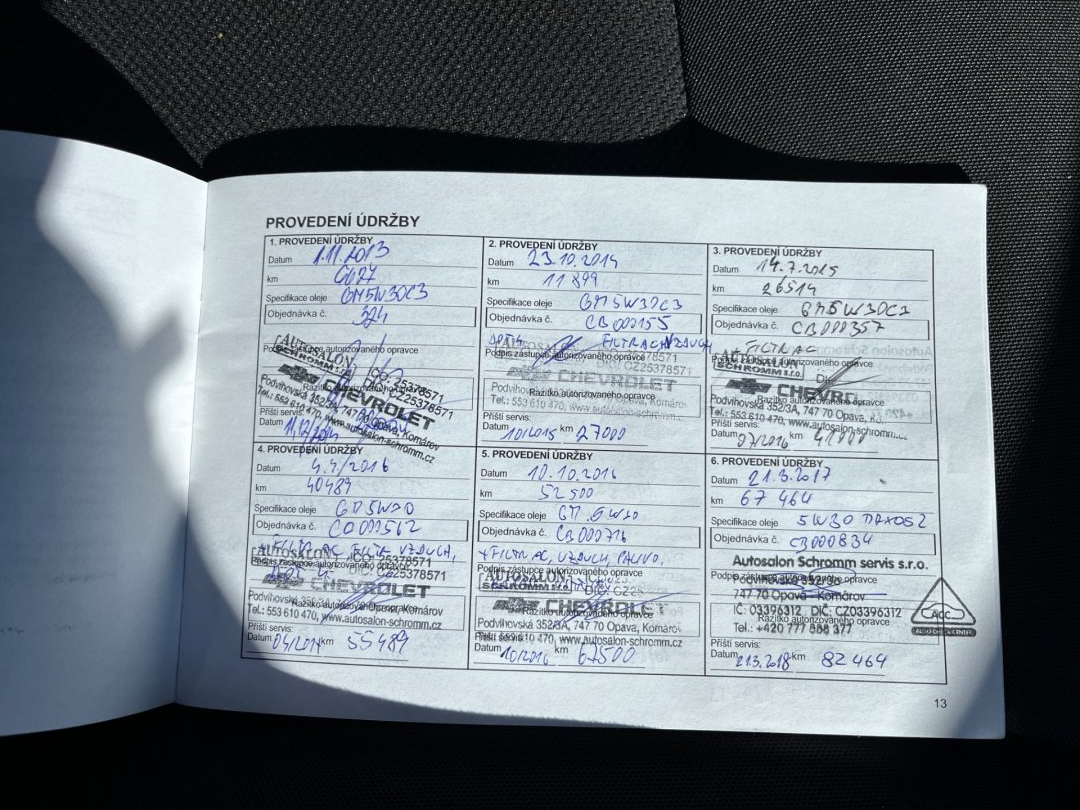 PROVEDENÍ ÚDRŽBY
1. PROVEDENÍ ÚDRŽBY
Datum 1.11.2013
km
Specifikace oleje GM5W30C3
Objednávka č. 324
Podpis zástupce autorizovaného opravce
AUTOSALON
SCHROMM s.r.o.
CZ25378571
CHEVROLET
Razítko autorizovaného opravce
Podvihovská 352/3A, 747 70 Opava, Komárov
Tel.: 553 610 470, www.autosalon-schromm.cz
Příští servis:
Datum
2. PROVEDENÍ ÚDRŽBY
Datum 23.10.2014
km 11 899
Specifikace oleje GM5W30C3
Objednávka č. CB000155
FILTR AC+VZDUCH
Podpis zástupce autorizovaného opravce
DIČ: CZ25378571
CHEVROLET
Razítko autorizovaného opravce
Podvihovská 352/3A, 747 70 Opava, Komárov
Tel.: 553 610 470, www.autosalon-schromm.
Příští servis:
Datum 10/2015 km 27000
3. PROVEDENÍ ÚDRŽBY
Datum 14.7.2015
km 26514
Specifikace oleje GM5W30C3
Objednávka č. CB000357
FILTR AC
Podpis zástupce autorizovaného opravce
AUTOSALON
SCHROMM s.r.o.
CHEVRO
Razítko autorizovaného opravce
Podvihovská 352/3A, 747 70 Opava, K
Tel.: 553 610 470, www.autosalon-schromm.
Příští servis:
Datum 07/2016 km 41000
4. PROVEDENÍ ÚDRŽBY
Datum 4.4/2016
km 40489
Specifikace oleje
Objednávka č. CO000562
+ FILTR AC, FILTR VZDUCH,
AUTOSALON IČO: 25378571
Podpis zástupce autorizovaného opravce
CZ25378571
CHEVROLET
Podvihovská 352/3A, 747 70 Opava, Komárov
Razítko autorizovaného opravce
Tel.: 553 610 470, www.autosalon-schromm.cz
Příští servis:
Datum km 55489
5. PROVEDENÍ ÚDRŽBY
Datum 10.10.2016
km 52 500
Specifikace oleje GM 5W30
Objednávka č. CB000716
+ FILTR AC, VZDUCH, PALIVO,
Podpis zástupce autorizovaného opravce
AUTOSALON
SCHROMM s.r.o.
CHEVROLET
Razítko autorizovaného opravce
Podvihovská 352/3A, 747 70 Opava, Komárov
Příští servis:
Tel.: 553 610 470, www.autosalon-schromm.cz
Datum 10/2016 km 67500
6. PROVEDENÍ ÚDRŽBY
Datum 21.3.2017
km 67 464
Specifikace oleje 5W30
Objednávka č. CB000834
Autosalon Schromm servis s.r.o.
Podpis zástupce autorizovaného opravce
Podvihovská 352/3a
747 70 Opava - Komárov
IČ: 03396312 DIČ: CZ03396312
Razítko autorizovaného opravce
Tel.: +420 777 888 377
CACC
Příští servis:
Datum 21.3.2018 km 82 464
13